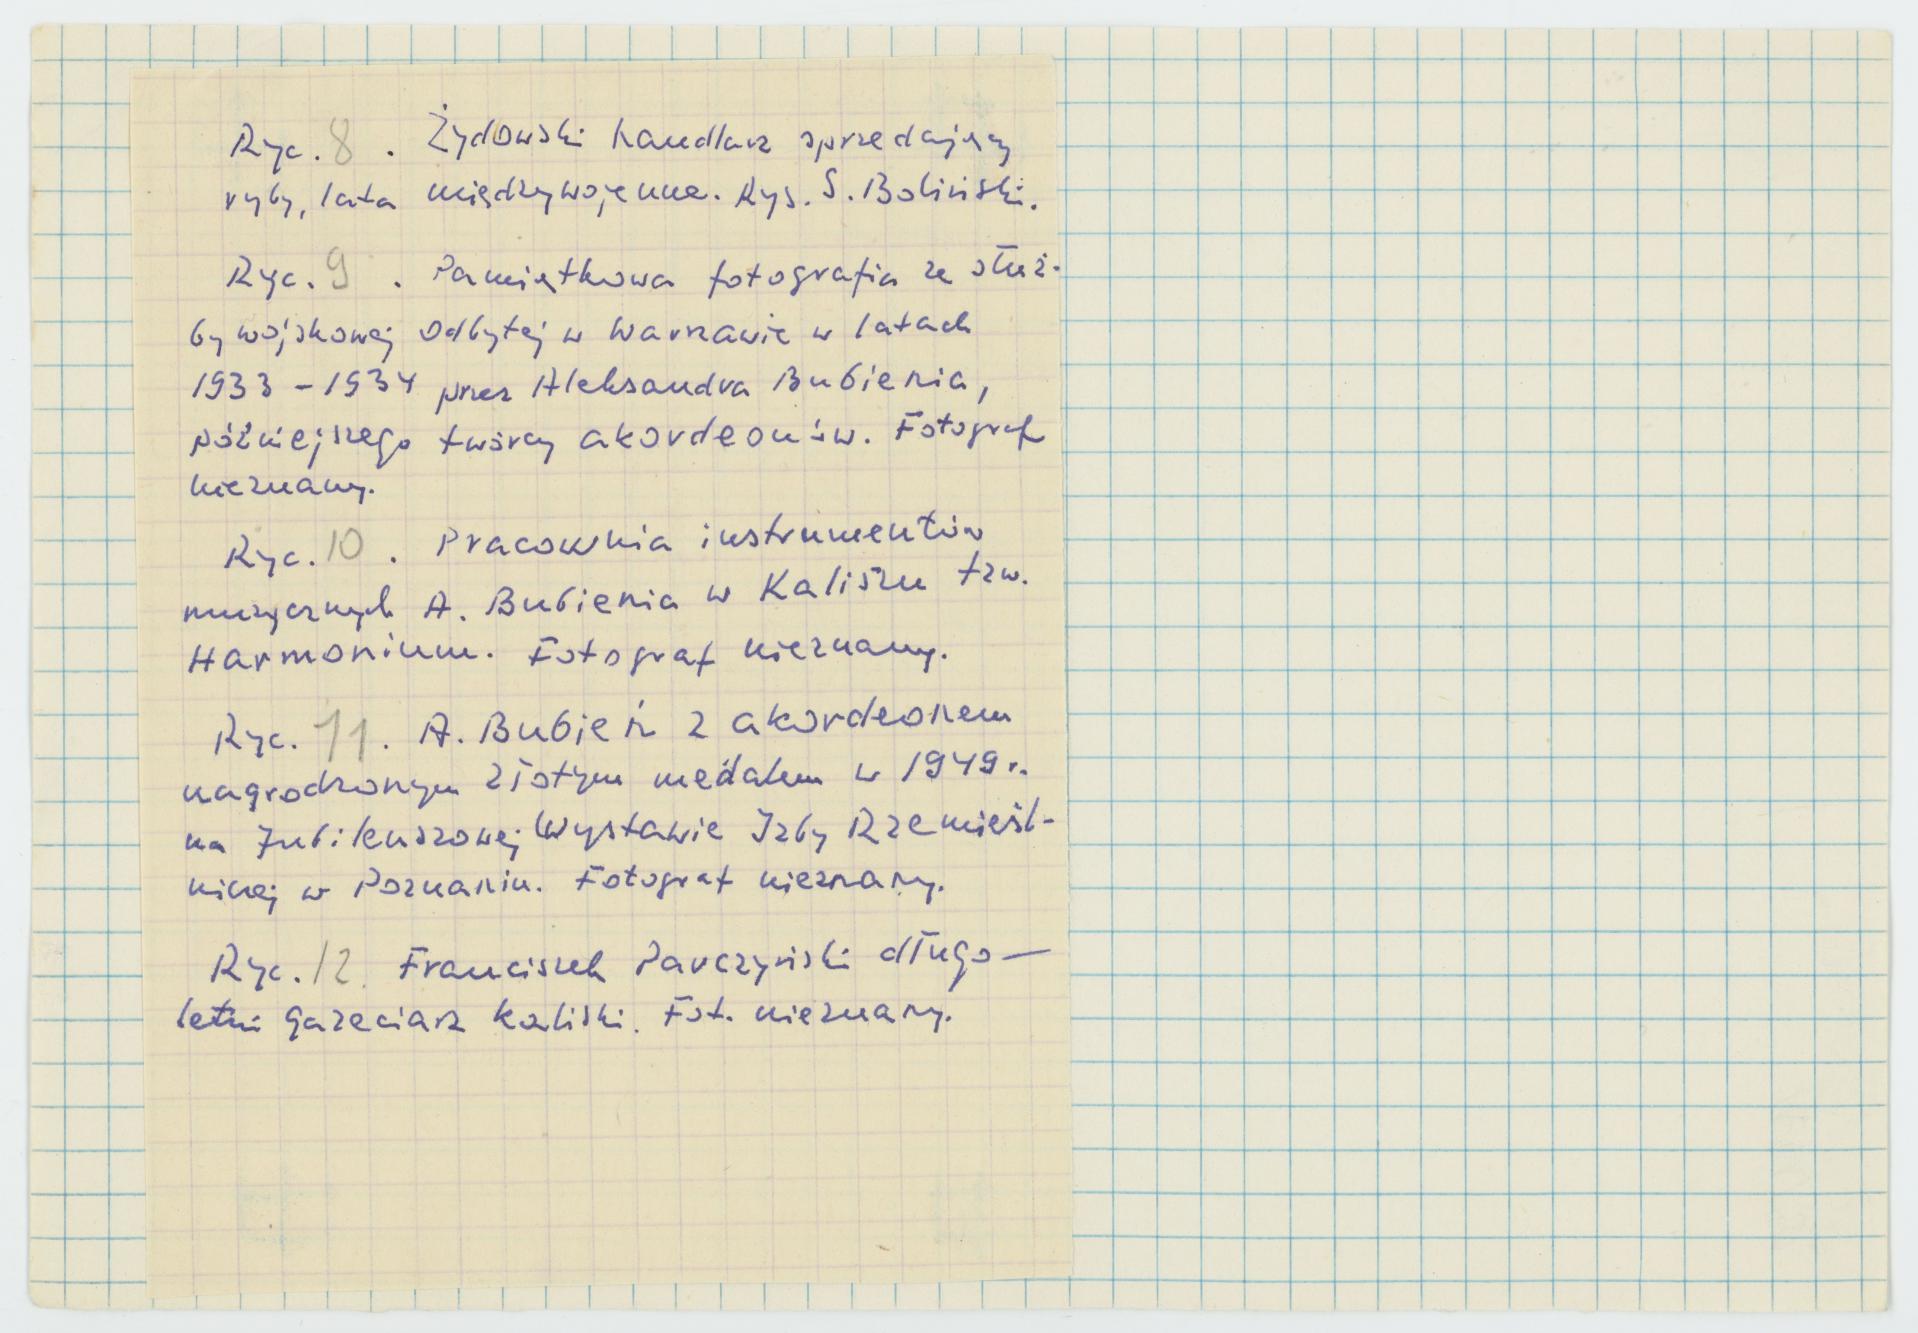 Ryc. 8 . Żydowski handlarz sprzedający
ryby, lata międzywojenne. Rys. S. Boliński.
Ryc. 9 . Pamiątkowa fotografia ze służ-
by wojskowej odbytej w Warszawie w latach
1933 - 1934 przez Aleksandra Bubienia,
późniejszego twórcy akordeonów. Fotograf
nieznany.
Ryc. 10 . Pracownia instrumentów
muzycznych A. Bubienia w Kaliszu tzw.
Harmonium. Fotograf nieznany.
Ryc. 11 . A. Bubień z akordeonem
nagrodzonym złotym medalem w 1949 r.
na Jubileuszowej Wystawie Izby Rzemieśl-
niczej w Poznaniu. Fotograf nieznany.
Ryc. 12. Franciszek Parczyński długo-
letni gazeciarz kaliski. Fot. nieznany.